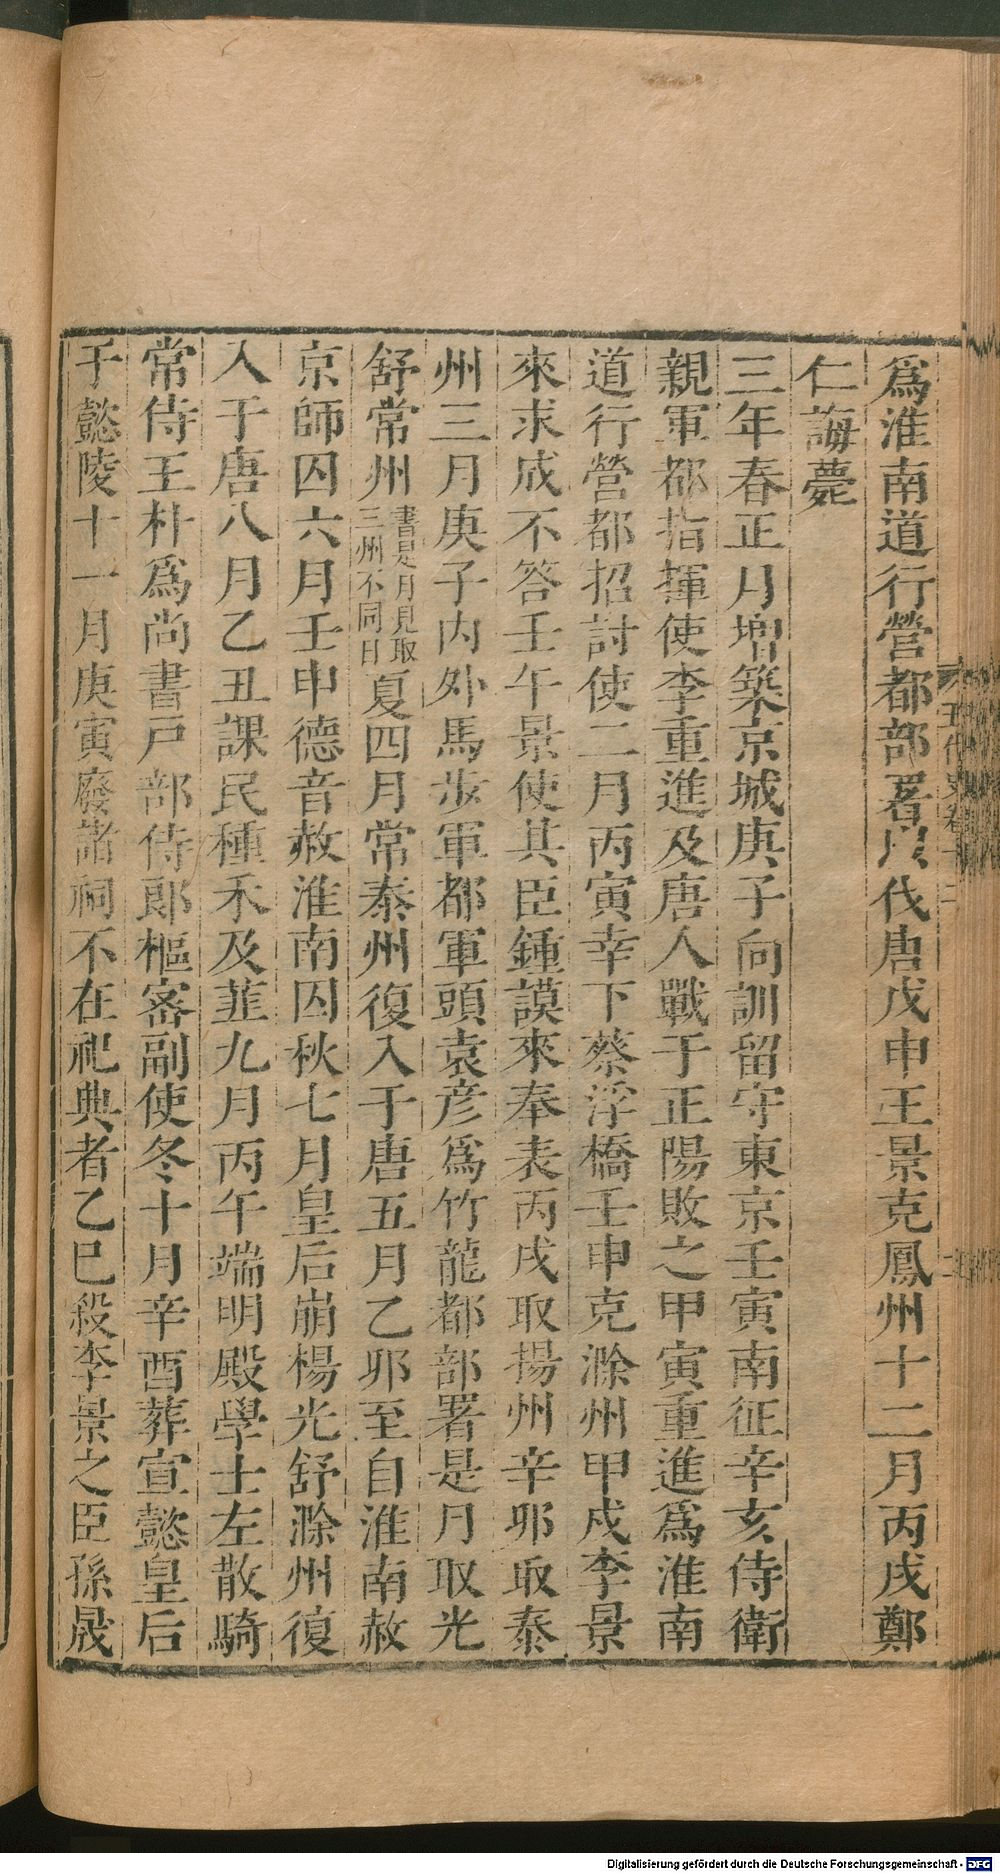 爲淮南道行營都部署以伐唐戊申王景克鳳州十二月丙戌鄭
仁誨薨
三年春正月增築京城庚子向訓留守東京壬寅南征辛亥侍衛
親軍都指揮使李重進及唐人戰于正陽敗之甲寅重進爲淮南
道行營都招討使二月丙寅幸下蔡浮橋壬申克滁州甲戌李景
來求成不答壬午景使其臣鍾謨來奉表丙戌取揚州辛卯取泰
州三月庚子内外馬步軍都軍頭袁彦爲竹龍都部署是月取光
舒常州書是月見取三州不同日夏四月常泰州復入于唐五月乙卯至自淮南赦
京師囚六月壬申德音赦淮南囚秋七月皇后崩楊光舒滁州復
入于唐八月乙丑課民種禾及韮九月丙午端明殿學士左散騎
常侍王朴爲尚書戸部侍郎樞密副使冬十月辛酉葬宣懿皇后
于懿陵十一月庚寅廢諸祠不在祀典者乙巳殺李景之臣孫晟
五代史卷十二
Digitalisierung gefördert durch die Deutsche Forschungsgemeinschaft - DFG